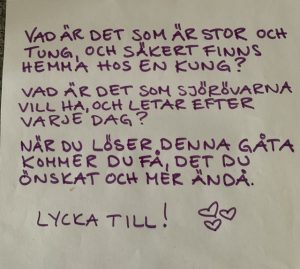 VAD ÄR DET SOM ÄR STOR OCH
TUNG, OCH SÄKERT FINNS
HEMMA HOS EN KUNG?
VAD ÄR DET SOM SJÖRÖVARNA
VILL HA, OCH LETAR EFTER
VARJE DAG?
NÄR DU LÖSER DENNA GÅTA
KOMMER DU FÅ, DET DU
ÖNSKAT OCH MER ÄNDÅ.
LYCKA TILL!